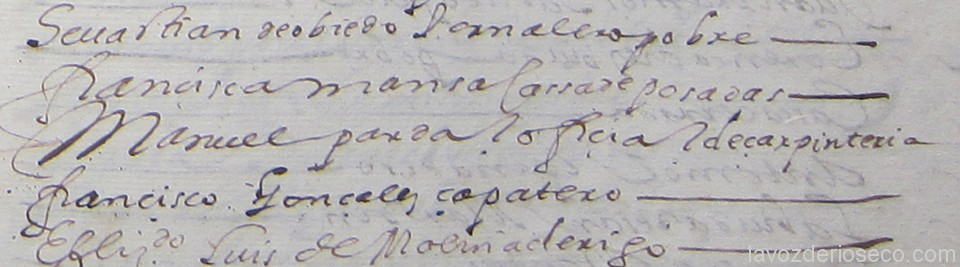 Seuastian de obiedo Jornalero pobre
francisca mansa Cassa de posadas
Manuel parda l oficial de carpinteria
francisco Gonçalez çapatero
El liz.do Luis de Molina clerigo
lavozderioseco.com